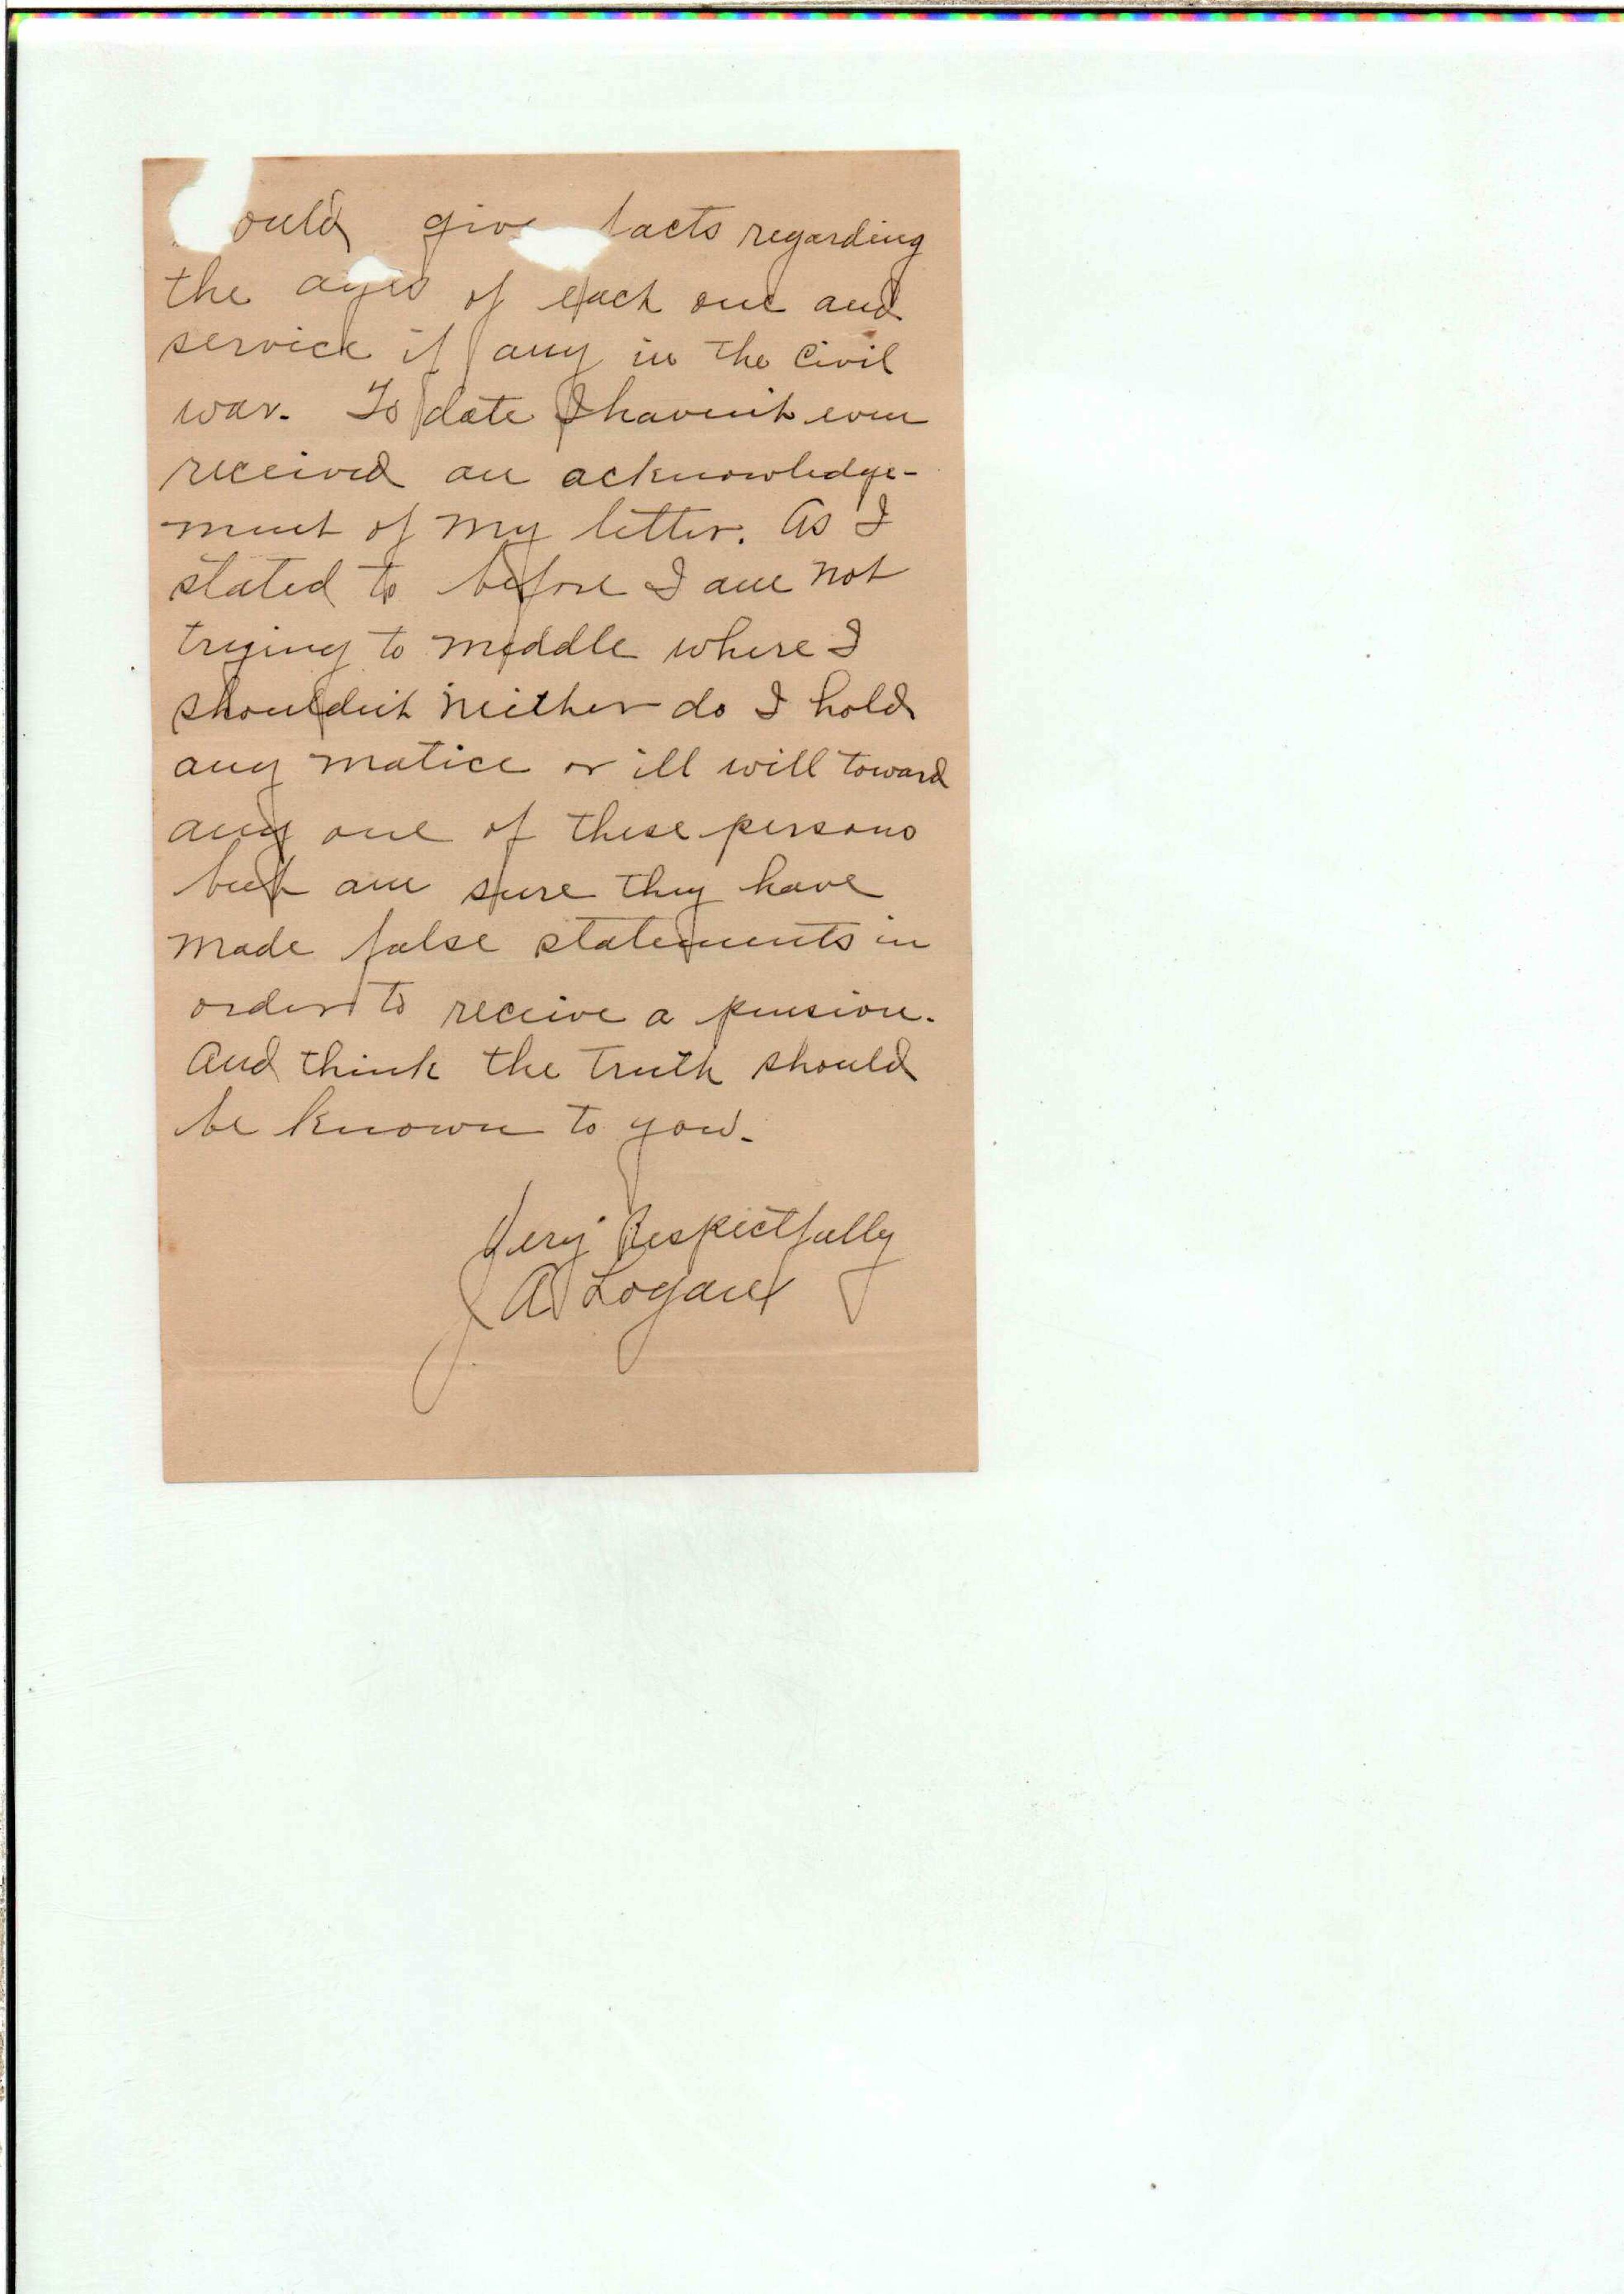 ould give facts regarding
the ages of each one and
service if any in the Civil
war. To date I haven't even
received an acknowledge-
ment of my letter. As I
stated to before I am not
trying to meddle where I
shouldn't neither do I hold
any matice or ill will toward
any one of these persons
but am sure they have
made false statements in
order to receive a pension.
And think the truth should
be known to you.
Very Respectfully
A Logan